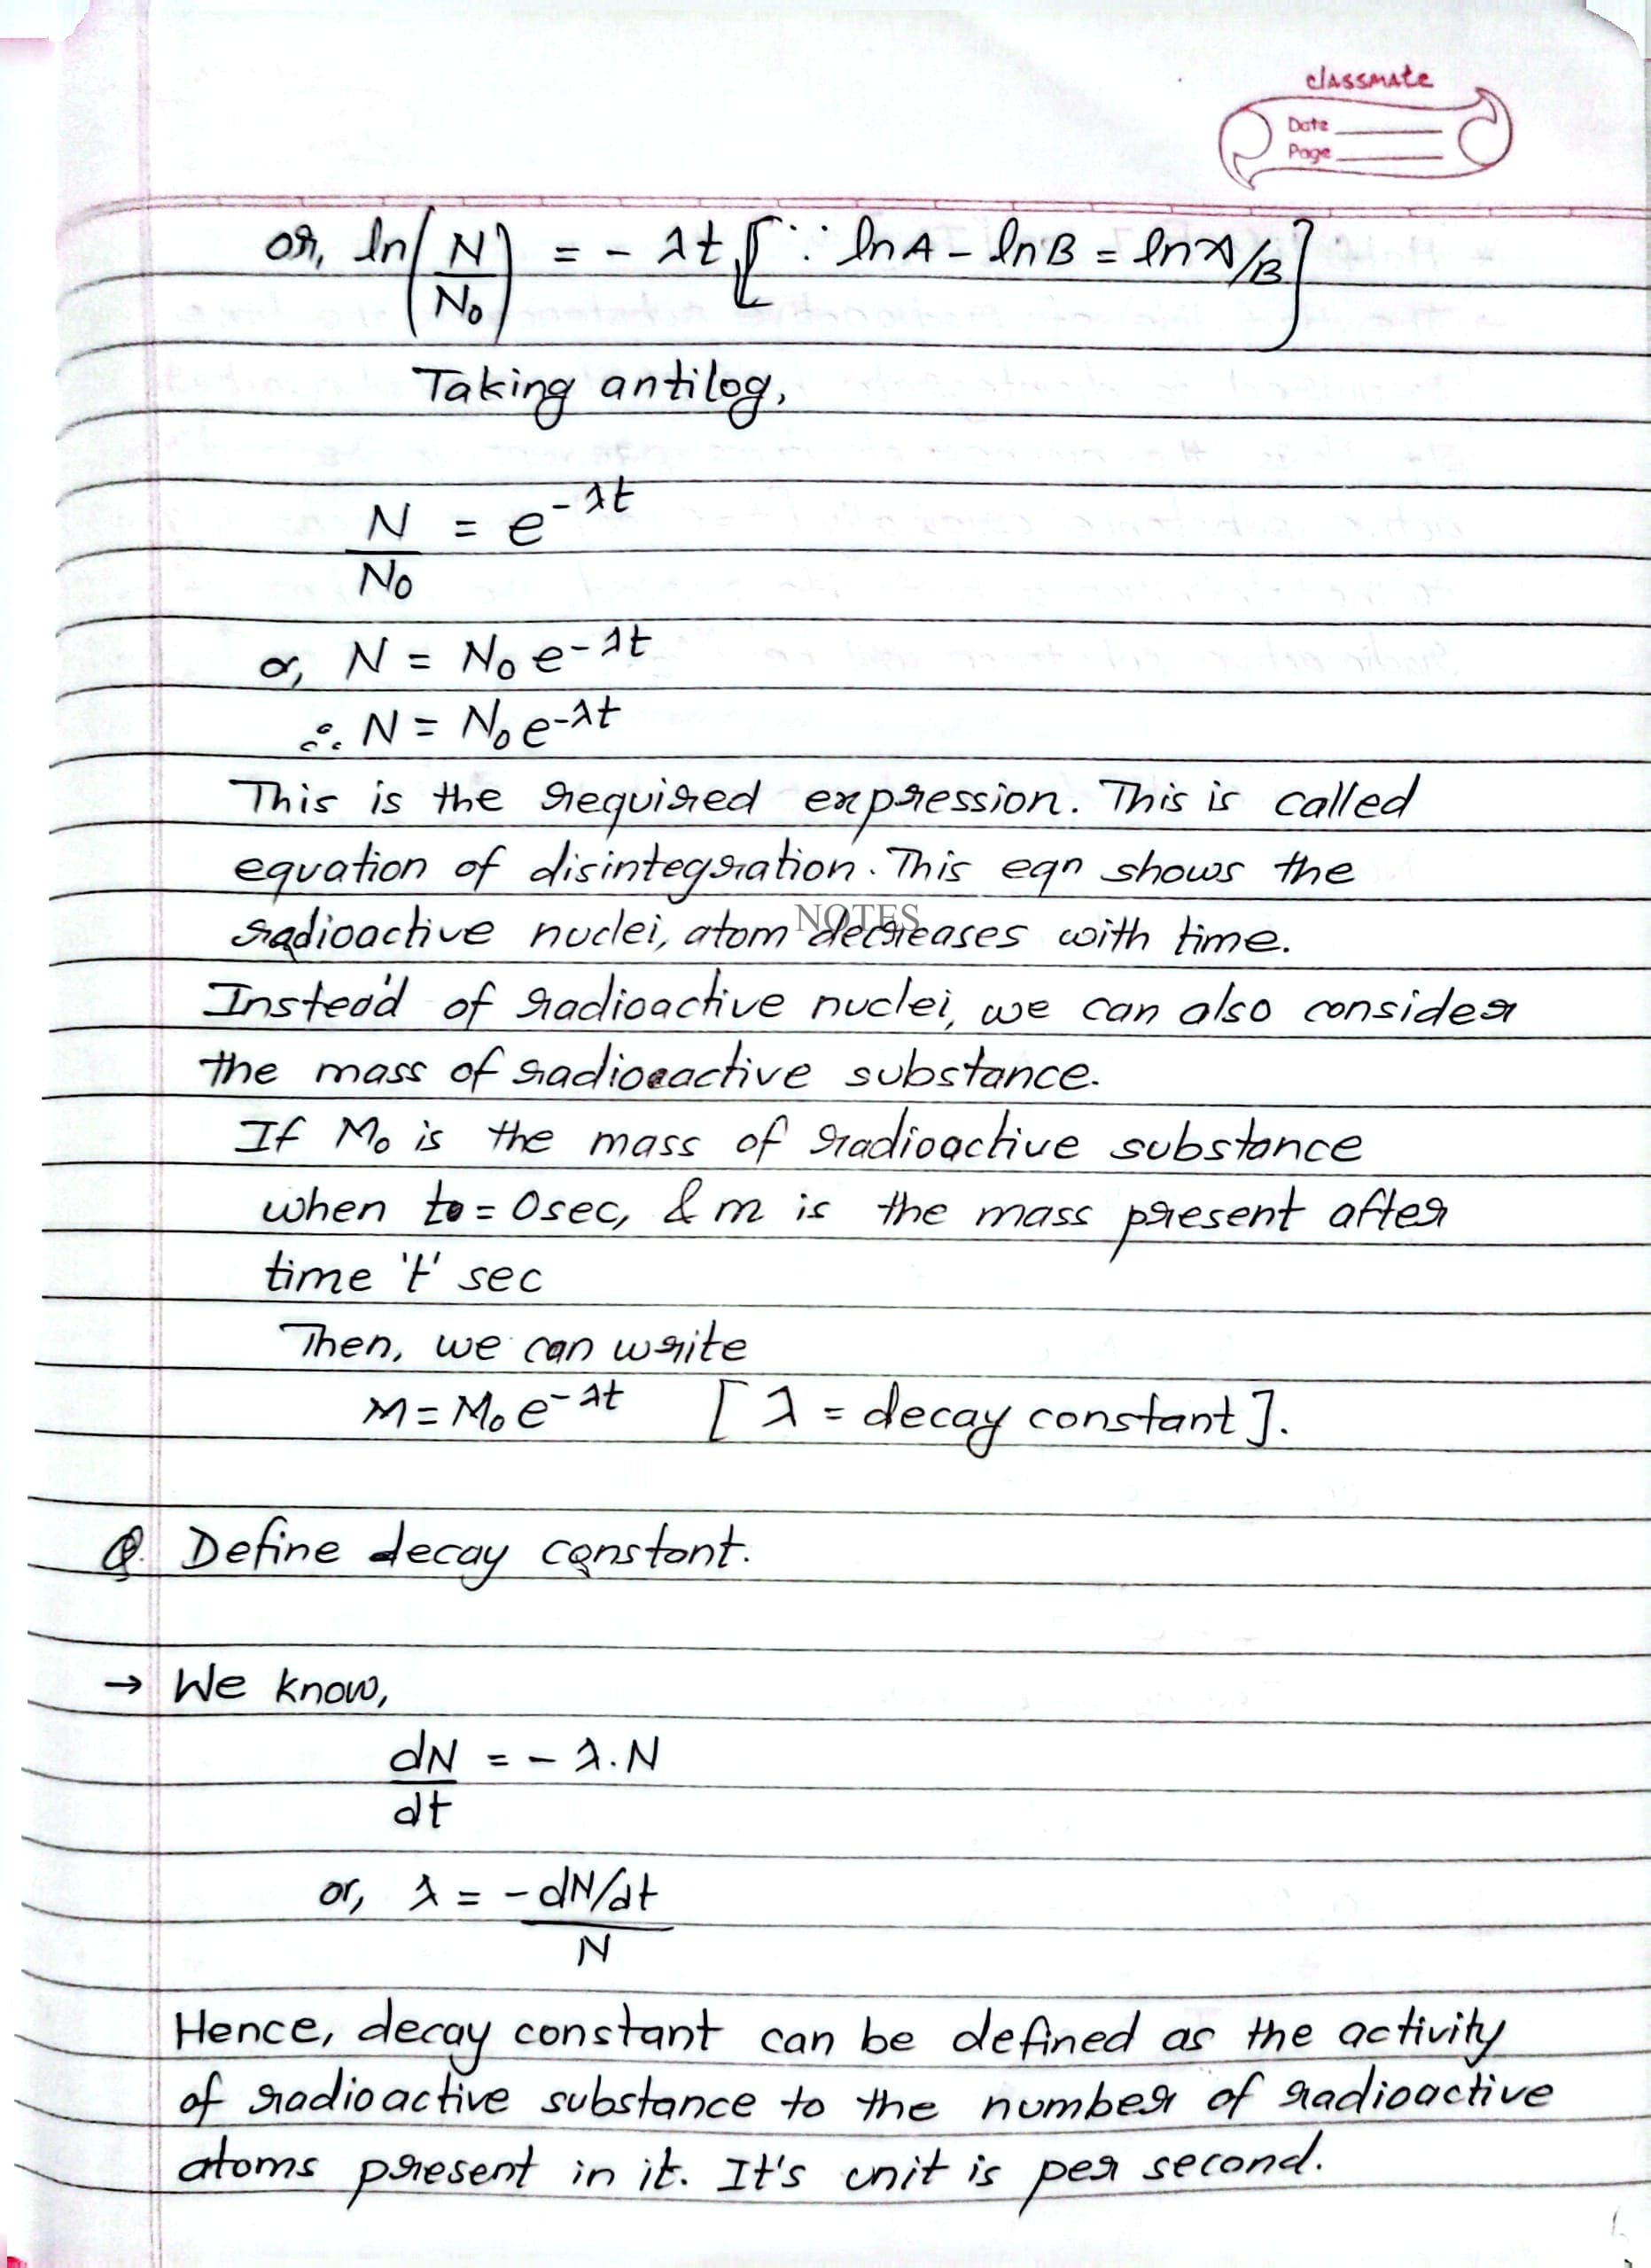 classmate
Date
Page
or, ln(N/N₀) = - λt [∵ lnA - lnB = lnA/B]
Taking antilog,
N/N₀ = e^-λt
or, N = N₀e^-λt
∴ N = N₀e^-λt
This is the required expression. This is called
equation of disintegration. This eqn shows the
NOTES
radioactive nuclei, atom decreases with time.
Instead of radioactive nuclei, we can also consider
the mass of radioactive substance.
If M₀ is the mass of radioactive substance
when t₀ = 0sec, & m is the mass present after
time 't' sec
Then, we can write
M = M₀e^-λt [λ = decay constant].
Q. Define decay constant.
→ We know,
dN/dt = - λ.N
or, λ = -dN/dt / N
Hence, decay constant can be defined as the activity
of radioactive substance to the number of radioactive
atoms present in it. It's unit is per second.